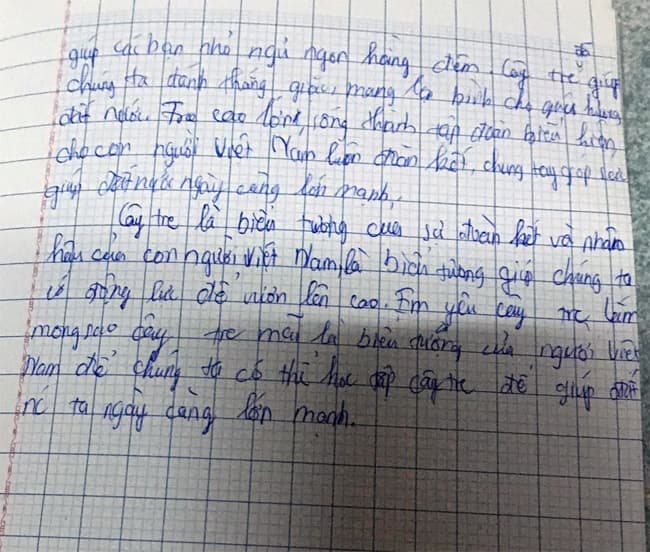 giúp các bạn nhỏ ngủ ngon hàng đêm. Cây tre giúp
chúng ta đánh thắng giặc, mang lại bình cho quê hương
đất nước. Tre cao lớn, sống thành tập đoàn biểu hiện
cho con người Việt Nam luôn đoàn kết, chung tay góp sức
giúp đất nước ngày càng lớn mạnh.
Cây tre là biểu tượng của sự đoàn kết và nhân
hậu của con người Việt Nam, là biểu tượng giúp chúng ta
có động lực để vươn lên cao. Em yêu cây tre lắm
mong sao cây tre mãi là biểu tượng của người Việt
Nam để chúng ta có thể học tập cây tre để giúp đất
nc ta ngày càng lớn mạnh.